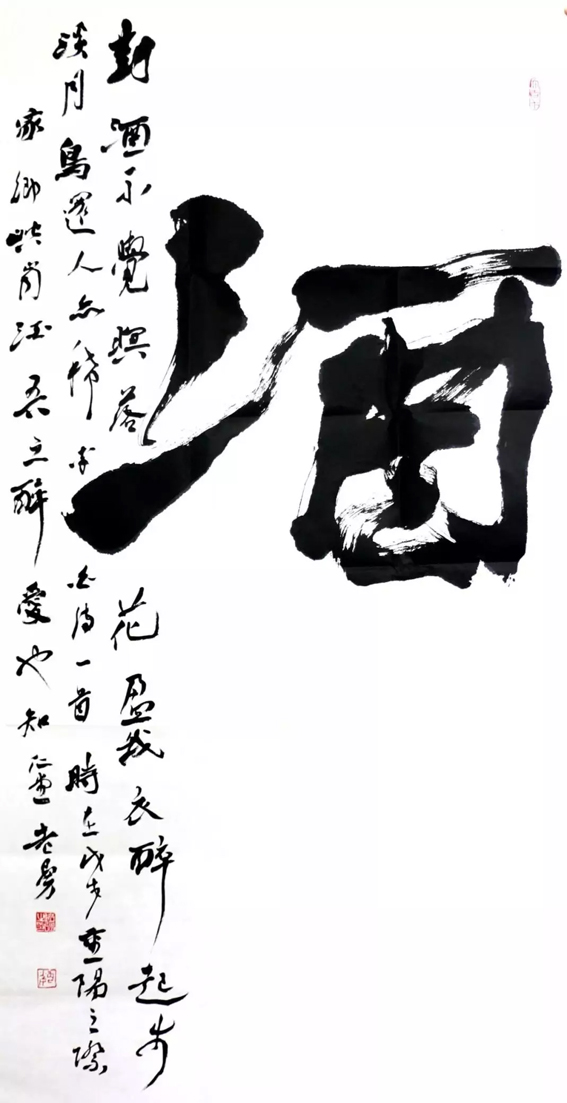 酒
對酒不覺暝落花盈我衣醉起步
溪月鳥還人亦稀李白詩一首時在戊戌重陽之際
家鄉尚酒吾之醉愛也知仁老勇